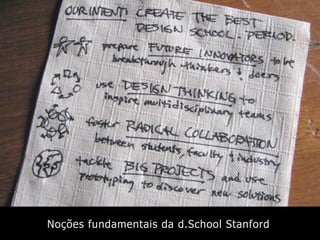 OUR INTENT: CREATE THE BEST
DESIGN SCHOOL. PERIOD.
prepare FUTURE INNOVATORS to be
breakthrough thinkers & doers
use DESIGN THINKING to
inspire multidisciplinary teams
foster RADICAL COLLABORATION
between students, faculty & industry
tackle BIG PROJECTS and use
prototyping to discover new solutions
Noções fundamentais da d.School Stanford